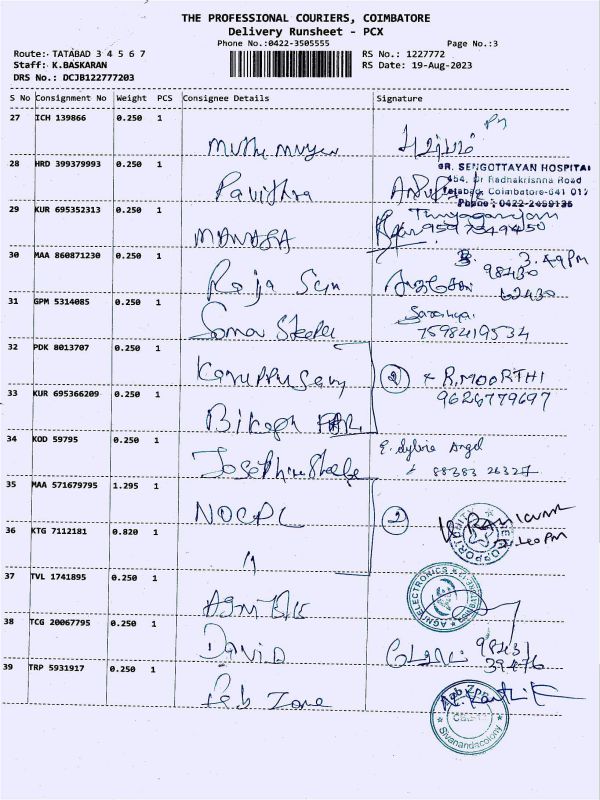 THE PROFESSIONAL COURIERS, COIMBATORE
Delivery Runsheet - PCX
Phone No.:0422-3505555
Page No.:3
Route:- TATABAD 3 4 5 6 7
Staff: K.BASKARAN
DRS No.: DCJB122777203
RS No.: 1227772
RS Date: 19-Aug-2023
S No Consignment No Weight PCS Consignee Details Signature
27 ICH 139866 0.250 1
28 HRD 399379993 0.250 1
Pavithra
DR. SENGOTTAYAN HOSPITAL
Dr Radhakrishna Road
Tatabad, Coimbatore-641 012
Phone : 0422-2499135
29 KUR 695352313 0.250 1
MANASA
Thiyagarajan
9597549450
30 MAA 860871230 0.250 1
Raja
3.49PM
98430
62430
31 GPM 5314085 0.250 1
Saranya
7598419534
32 PDK 8013707 0.250 1
Karuppusamy
② R.MOORTHI
9626779697
33 KUR 695366209 0.250 1
34 KOD 59795 0.250 1
88383 26327
35 MAA 571679795 1.295 1
NOCPL
②
36 KTG 7112181 0.820 1
"
37 TVL 1741895 0.250 1
AGNI ELECTRONICS
38 TCG 20067795 0.250 1
David
98431
39476
39 TRP 5931917 0.250 1
Feb Zone
Sivanandacolony